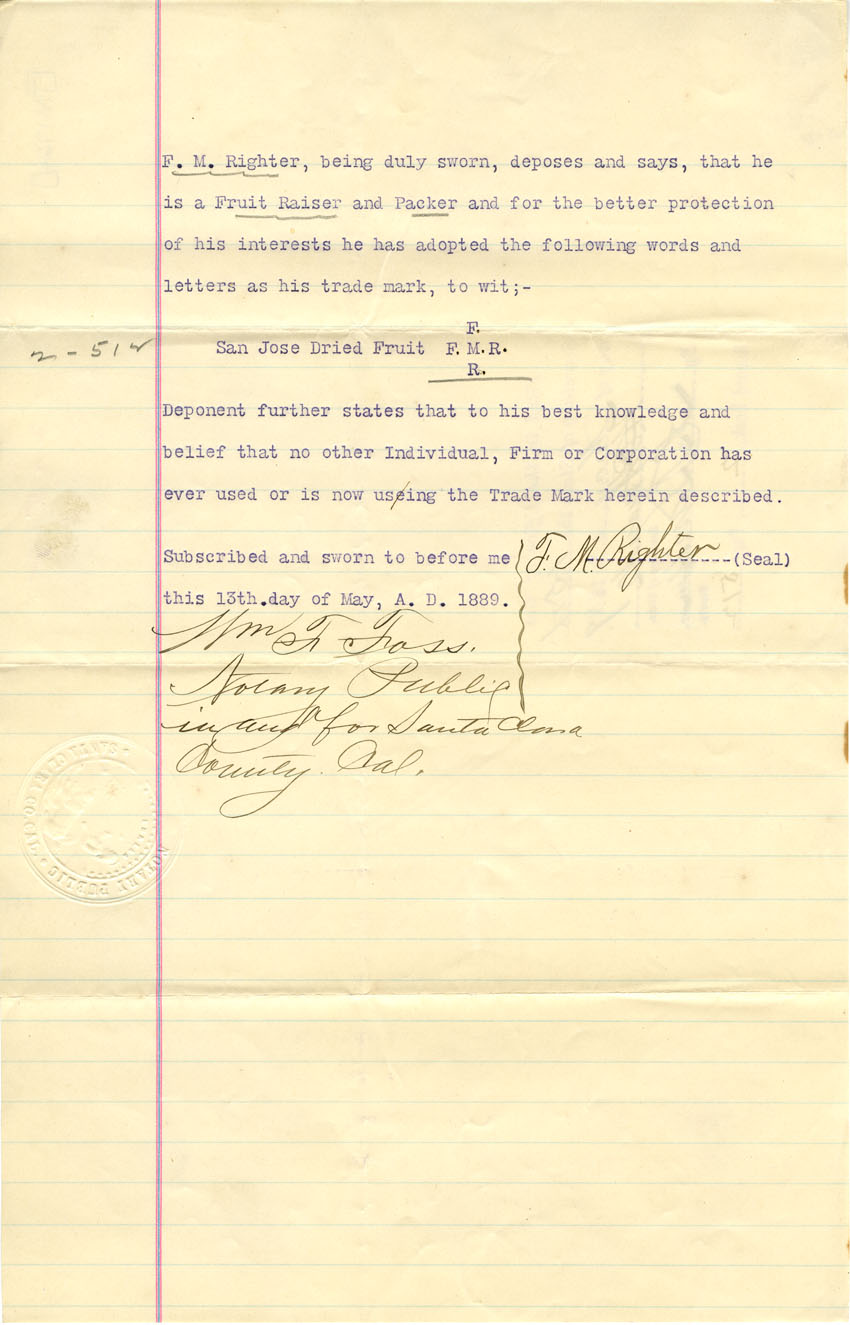 F. M. Righter, being duly sworn, deposes and says, that he
is a Fruit Raiser and Packer and for the better protection
of his interests he has adopted the following words and
letters as his trade mark, to wit;-
F.
2-512 San Jose Dried Fruit F. M.R.
R.
Deponent further states that to his best knowledge and
belief that no other Individual, Firm or Corporation has
ever used or is now useing the Trade Mark herein described.
Subscribed and sworn to before me F. M. Righter (Seal)
this 13th.day of May, A. D. 1889.
Wm F Foss.
Notary Public
in and for Santa Clara
County. Cal.
NOTARY PUBLIC · SANTA CLARA CO. CAL. ·